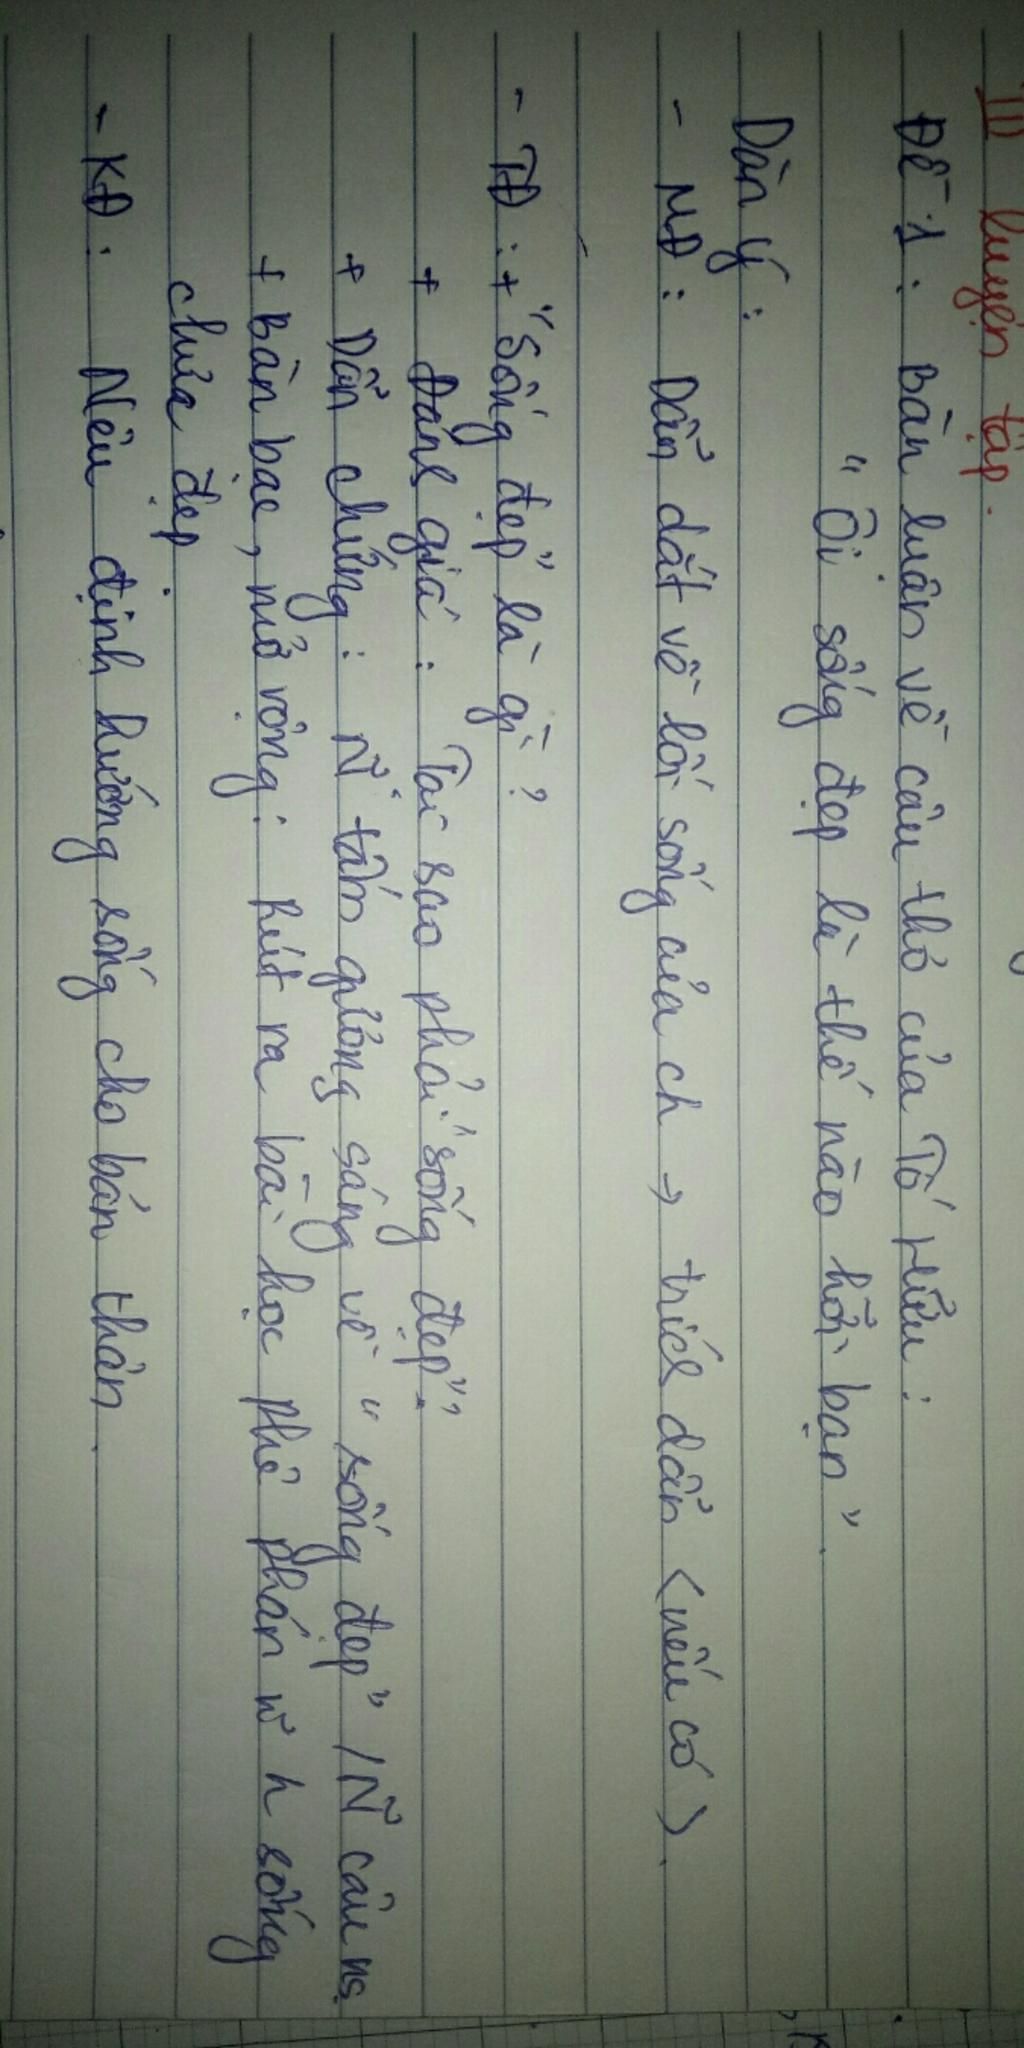 III luyện tập.
Đề 1: Bàn luận về câu thơ của Tố Hữu:
"Ôi sống đẹp là thế nào hỡi bạn".
Dàn ý:
- MĐ: Dẫn dắt về lối sống của ch → trích dẫn <nếu có>.
- TĐ: + "Sống đẹp" là gì?
+ Đánh giá: Tại sao phải "sống đẹp".
+ Dẫn chứng: Ñ tấm gương sáng về "sống đẹp" / Ñ câu ns
+ Bàn bạc, mở rộng: rút ra bài học phê phán n~ h sống
chưa đẹp
- KĐ: Nêu định hướng sống cho bản thân.